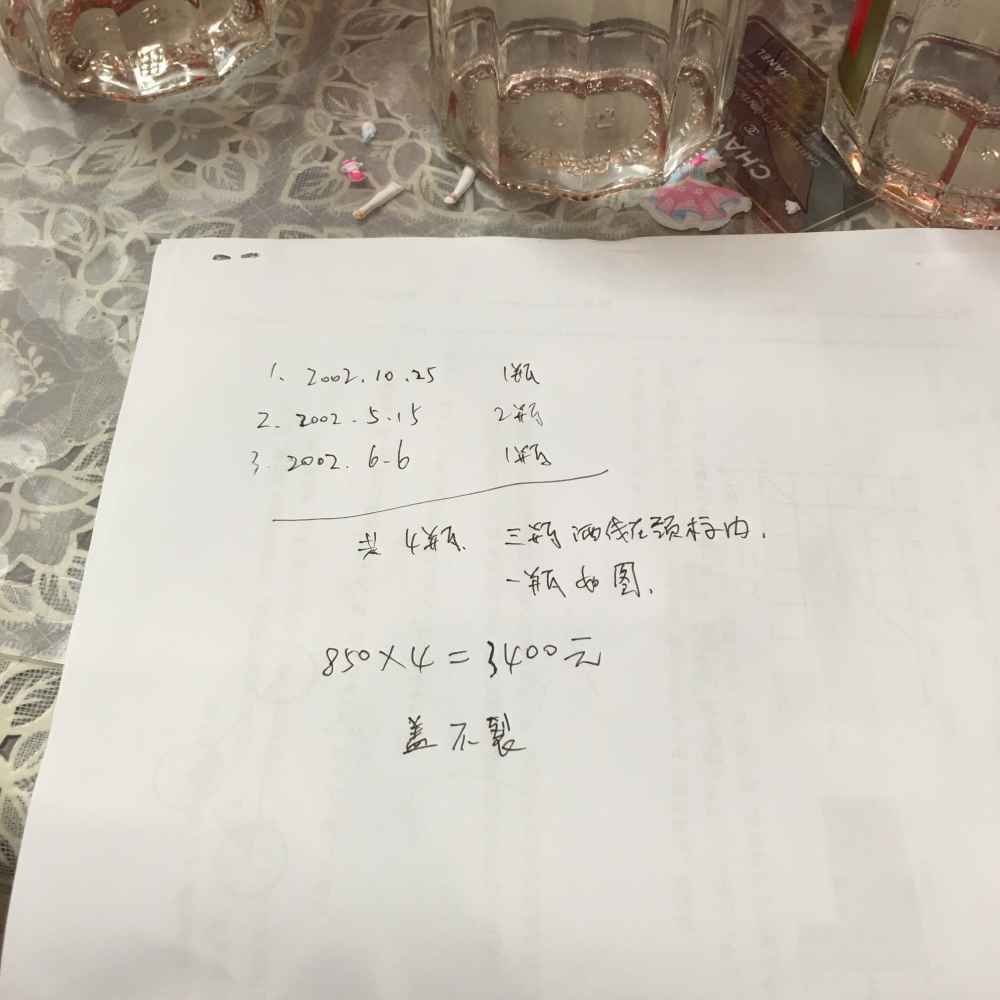 CHANEL
CHAN
1. 2002.10.25 1瓶
2. 2002.5.15 2瓶
3. 2002.6-6 1瓶
共4瓶 三瓶酒线在颈标内.
一瓶如图.
850×4=3400元
盖不裂